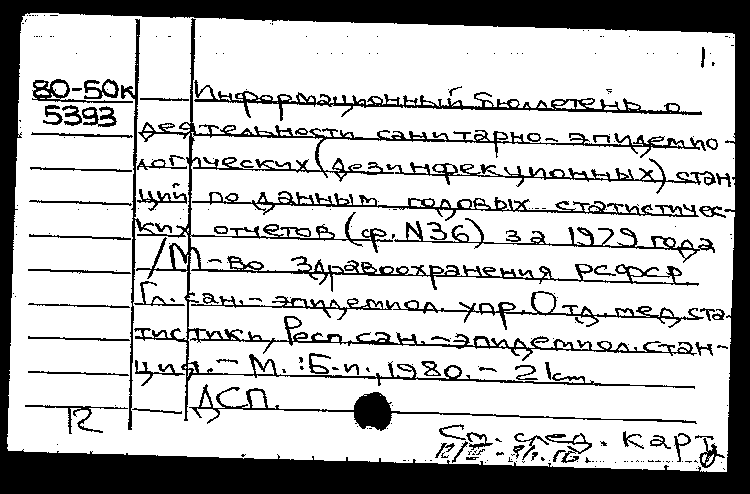 1.
80-50к Информационный бюллетень о
5393 деятельности санитарно-эпидемио-
логических (дезинфекционных) стан-
ций по данным годовых статистичес-
ких отчетов (ф. N36) за 1979 года
/М-во Здравоохранения РСФСР
Гл. сан.-эпидемиол. упр. Отд. мед. ста-
тистики, Респ. сан.-эпидемиол. стан-
ция. - М. : Б.и., 1980. - 21 cm.
ДСП.
12
См. след. карту